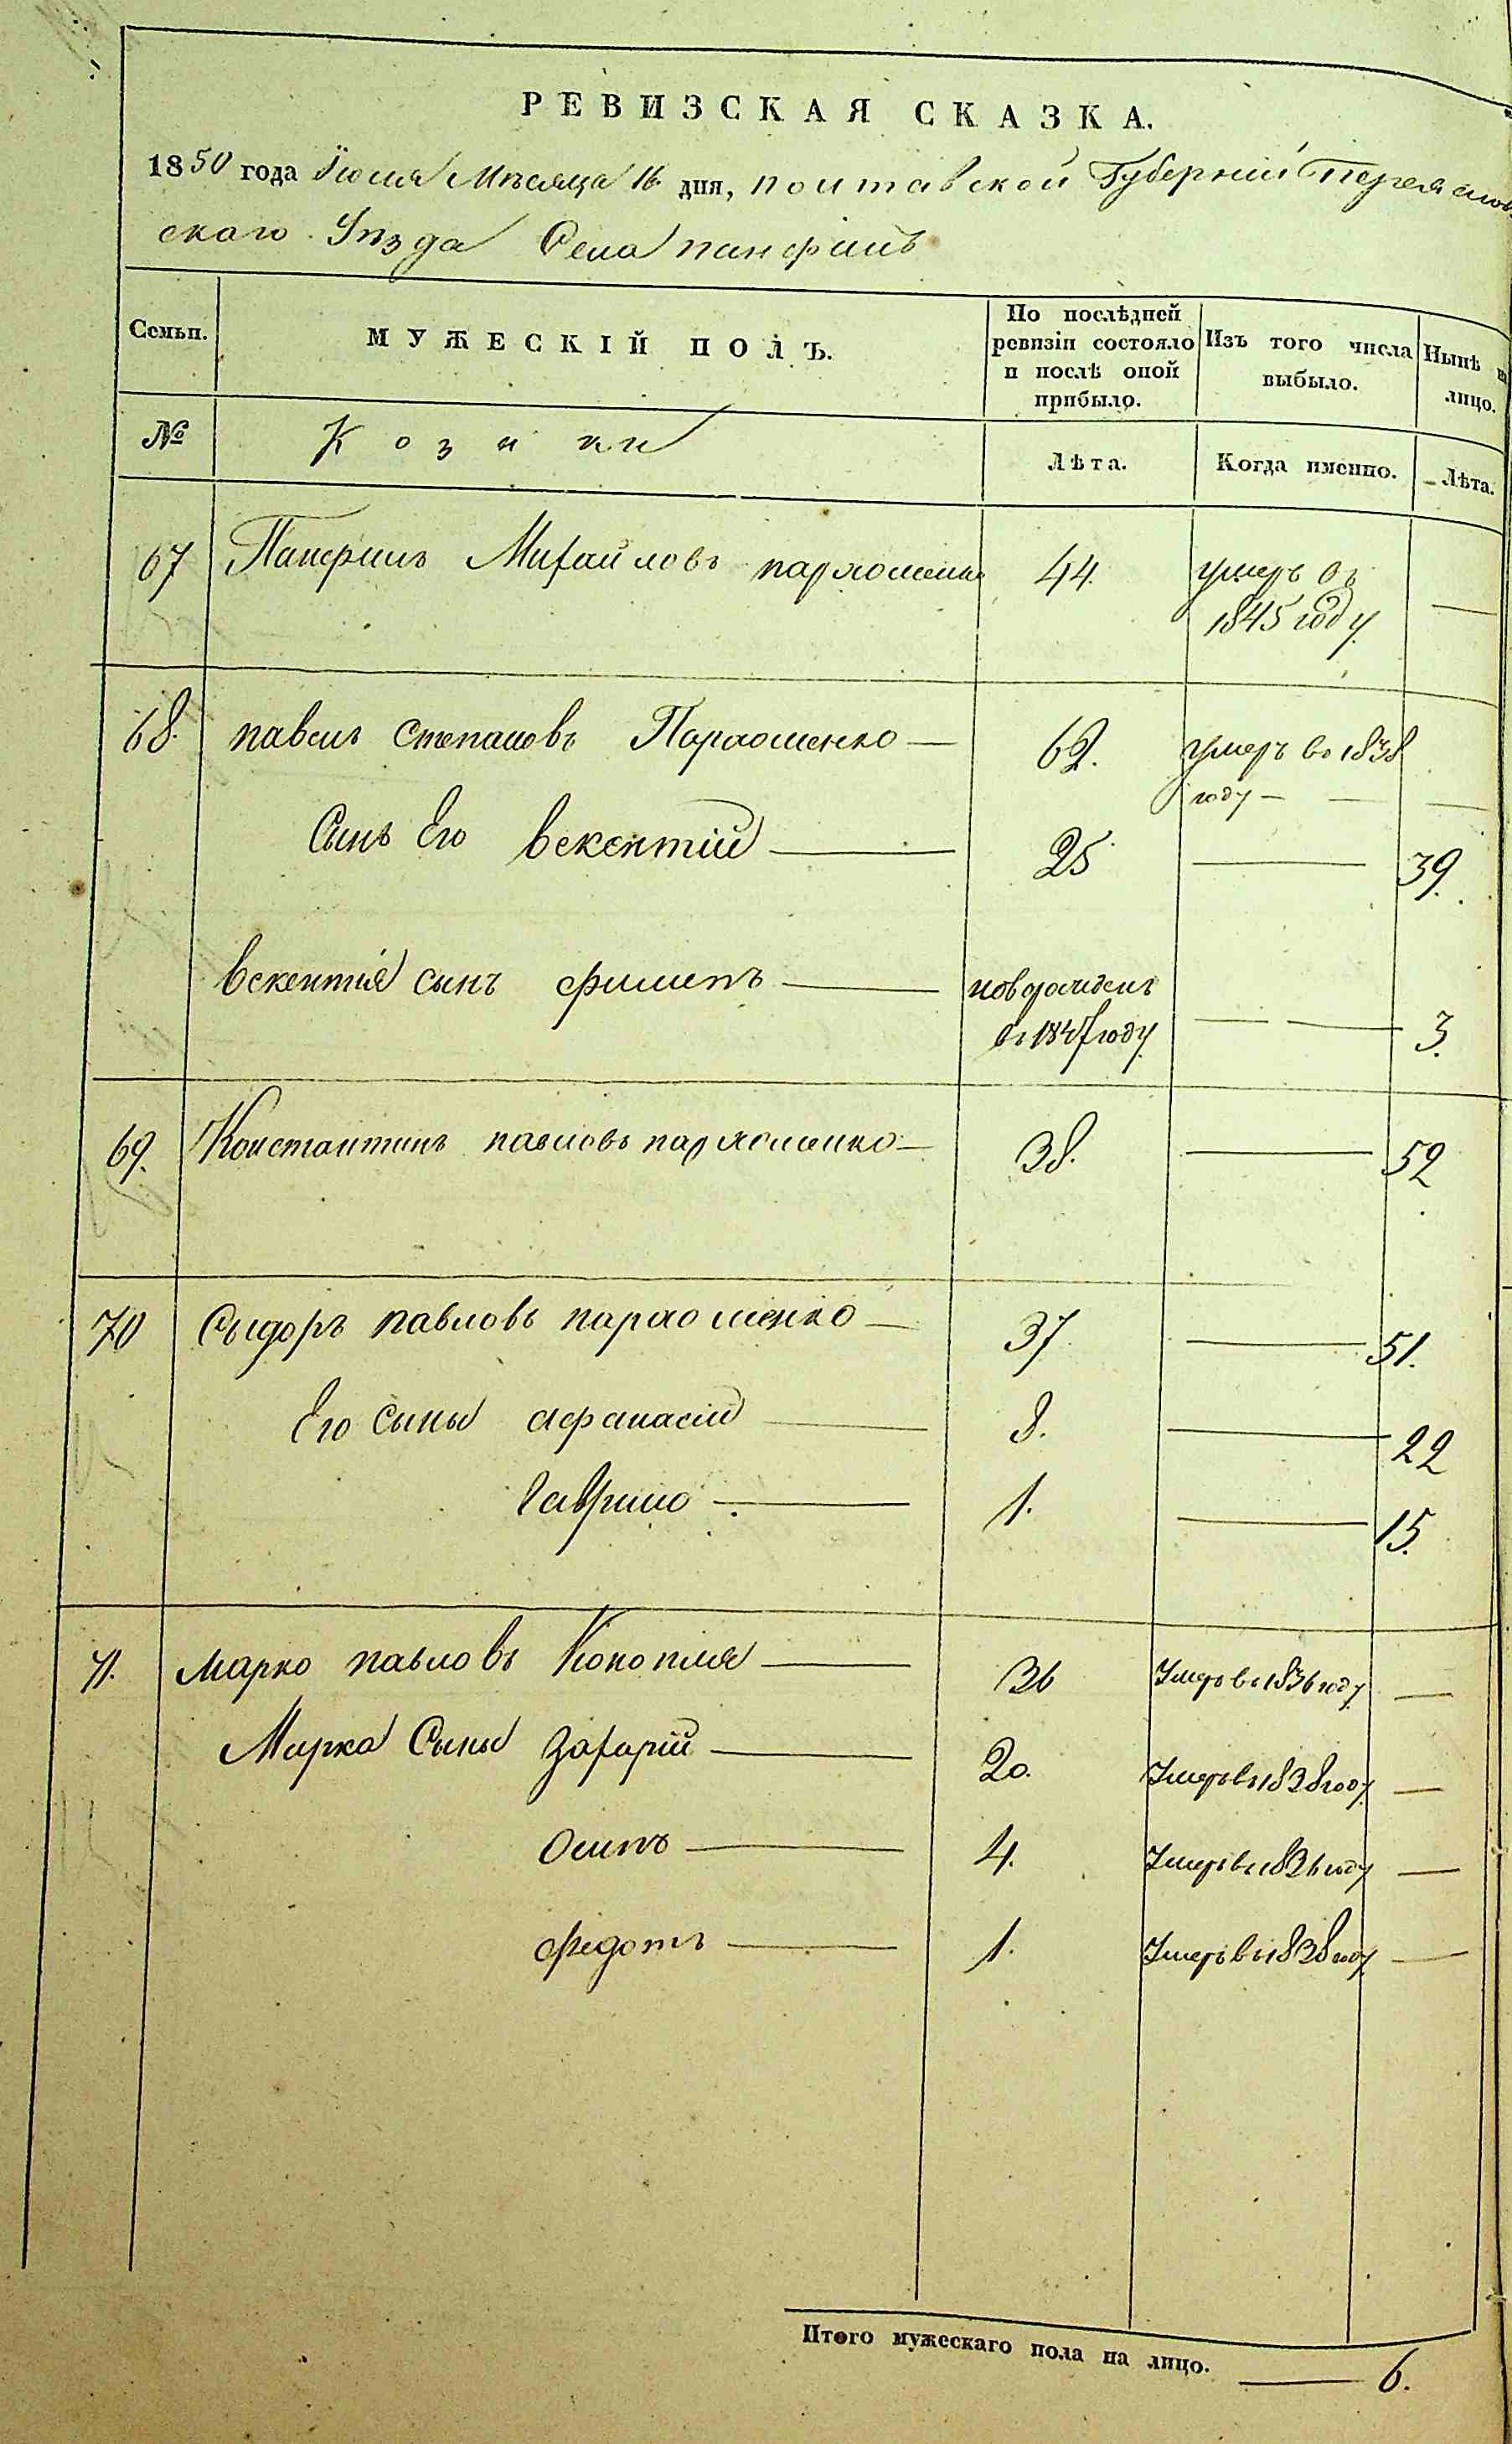 РЕВИЗСКАЯ СКАЗКА.
1850 года Іюля Мѣсяца 16 дня, полтавской Губерніи Переяслов
скаго Уѣзда Села панфилъ
Семьи.
МУЖЕСКІЙ ПОЛЪ.
По послѣдней ревизіи состояло и послѣ оной прибыло.
Изъ того числа выбыло.
Ныпѣ на лицо.
№
Козаки
Лѣта.
Когда именно.
Лѣта.
67 Панфилъ Михайловъ пархоменко 44. умеръ въ —
1845 году
68. павелъ Степановъ Пархоменко — 62. умеръ въ 1838
году — — —
Сынъ Его векентій — 25 — 39.
векентія сынъ филипъ — новорожденъ
въ 1847 году — — 3.
69. Константинъ павловъ пархоменко — 38. — 52
70 Сыдоръ павловъ пархоменко — 37 — 51.
Его сыны афанасій — 8. — 22
Гаврило — 1. — 15.
71. марко павловъ Конопля — 36 Умеръ въ 1836 году —
Марка Сыны Захарій — 20. Умеръ въ 1838 году —
Осипъ — 4. Умеръ въ 1836 году —
федотъ — 1. Умеръ въ 1838 году —
Итого мужескаго пола на лицо. — 6.